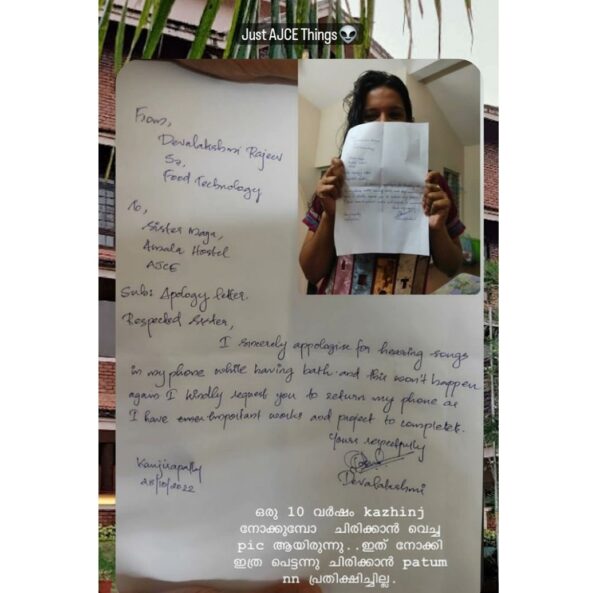 Just AJCE Things👽
From,
Devalakshmi Rajeev
S7,
Food Technology
To,
Sister Maga,
Amala Hostel
AJCE
Sub: Apology letter.
Respected Sister,
I sincerely appologise for hearing songs
in my phone while having bath and this won't happen
again I kindly request you to return my phone as
I have important works and project to complete.
Yours respectfully
Kanjirapally
28/10/2022
Devalakshmi
ഒരു 10 വർഷം kazhinj
നോക്കുമ്പോ ചിരിക്കാൻ വെച്ച
pic ആയിരുന്നു..ഇത് നോക്കി
ഇത്ര പെട്ടന്നു ചിരിക്കാൻ patum
nn പ്രതിക്ഷിച്ചില്ല.